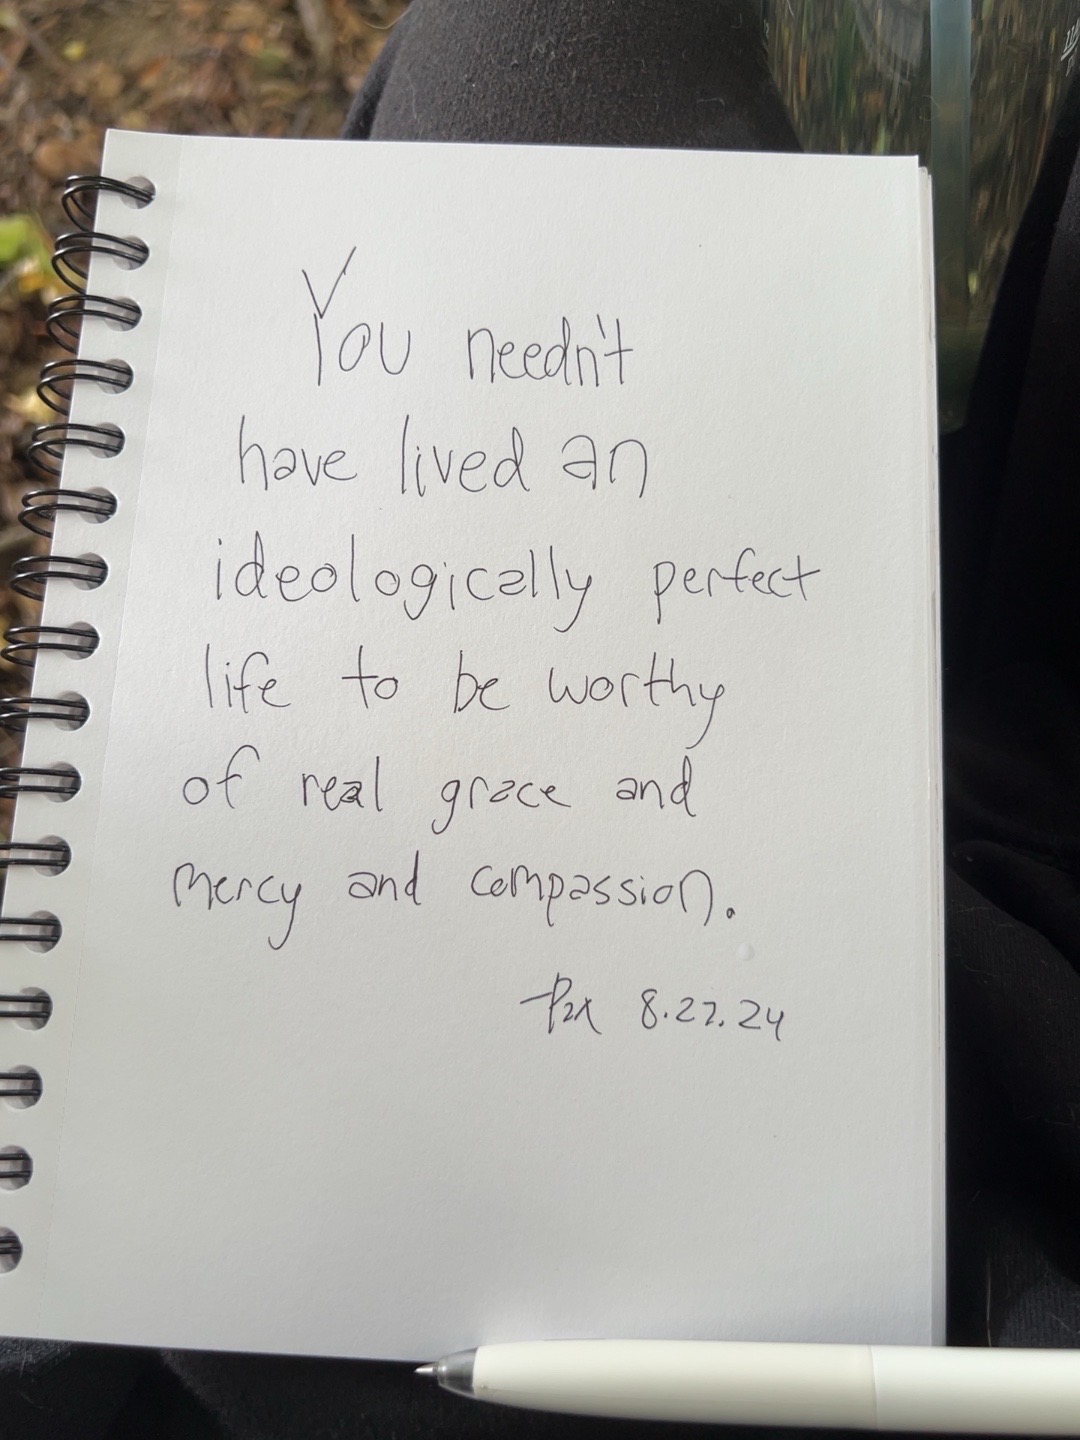 You needn't
have lived an
ideologically perfect
life to be worthy
of real grace and
mercy and compassion.
-Pax 8.22.24